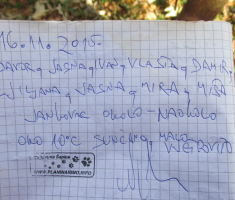 16.11.2015.
DAVOR, JASNA, IVAN, VLASTA, DAMIR,
LJILJANA, JASNA, MIRA, MIŠA
JANKOVAC OKOLO-NAOKOLO
OKO 10°C SUNČANO, MALO
VJETROVITO
WWW.PLANINARIMO.INFO